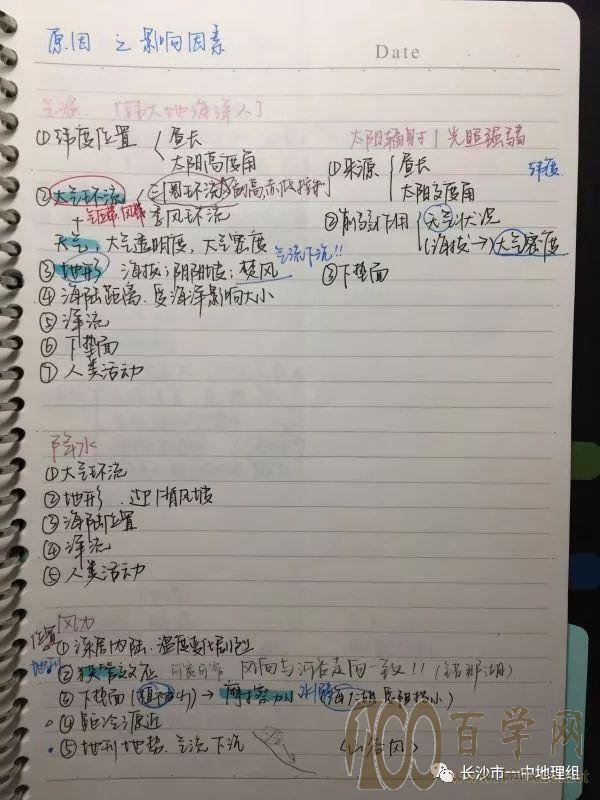 原因 之 影响因素
Date
气温. [纬大地海洋人]
①纬度位置 { 昼长
太阳高度角
②大气环流 { 三圈环流
气压带、风带 季风环流
天气, 大气透明度, 大气密度
③地形 海拔; 阴阳坡; 焚风 气流下沉!!
④海陆距离. 受海洋影响大小
⑤洋流
⑥下垫面
⑦人类活动
太阳辐射 | 光照强弱
①来源 { 昼长 纬度
太阳高度角
②削弱作用 { 天气状况
(海拔→) 大气密度
③下垫面
降水
①大气环流
②地形. 迎|背风坡
③海陆位置
④洋流
⑤人类活动
风力
位置 ①深居内陆. 温度变化剧烈
地形 ②狭管效应 风向与河谷走向一致!! (错那湖)
③下垫面 (植被少) → 摩擦力小
④距冷源近
⑤地形地势. 气流下沉 (山谷风)
100百学网
长沙市一中地理组